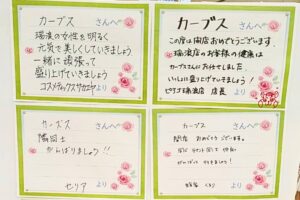 カーブス さんへ
瑞浪の女性を明るく
元気で美しくしていきましょう
一緒に頑張って
盛り上げていきましょう
コスメティックスサカエヤ より
カーブス さんへ
この度は開店おめでとうございます
瑞浪店のお客様の健康は
カーブスさんにお任せしました
いっしょに盛り上げていきましょう!
瑞浪店 店長 より
カーブス さんへ
隣同士
がんばりましょう!!
セリア より
カーブス さんへ
開店 おめでとう ございます。
より